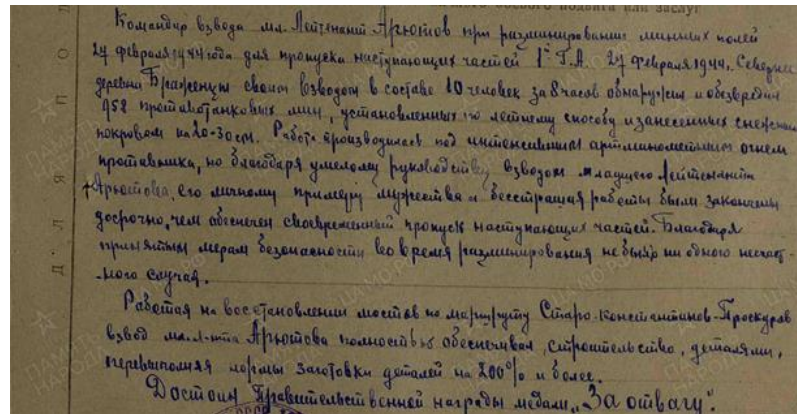 боевого подвига или заслуг
Командир взвода мл. Лейтенант Арютов при разминировании минных полей
27 февраля 1944 года для пропуска наступающих частей 1й Г.А. 27 февраля 1944г. Севернее
деревни Браженцы своим взводом в составе 10 человек за 8 часов обнаружил и обезвредил
958 противотанковых мин, установленных по летнему способу и занесенных снежным
покровом на 20-30 см. Работа производилась под интенсивным арт-минометным огнем
противника, но благодаря умелому руководству взводом младшего Лейтенанта
Арютова, его личному примеру мужества и бесстрашия работы были закончены
досрочно, чем обеспечен своевременный пропуск наступающих частей. Благодаря
принятым мерам безопасности во время разминирования не было ни одного несчаст-
-ного случая.
Работая на восстановлении мостов по маршруту Старо-Константинов-Проскуров
взвод мл. л-нта Арютова полностью обеспечивал, строительство, деталями,
перевыполняя нормы заготовки деталей на 200% и более.
Достоин Правительственной награды медали „За отвагу"
ДЛЯ ПО